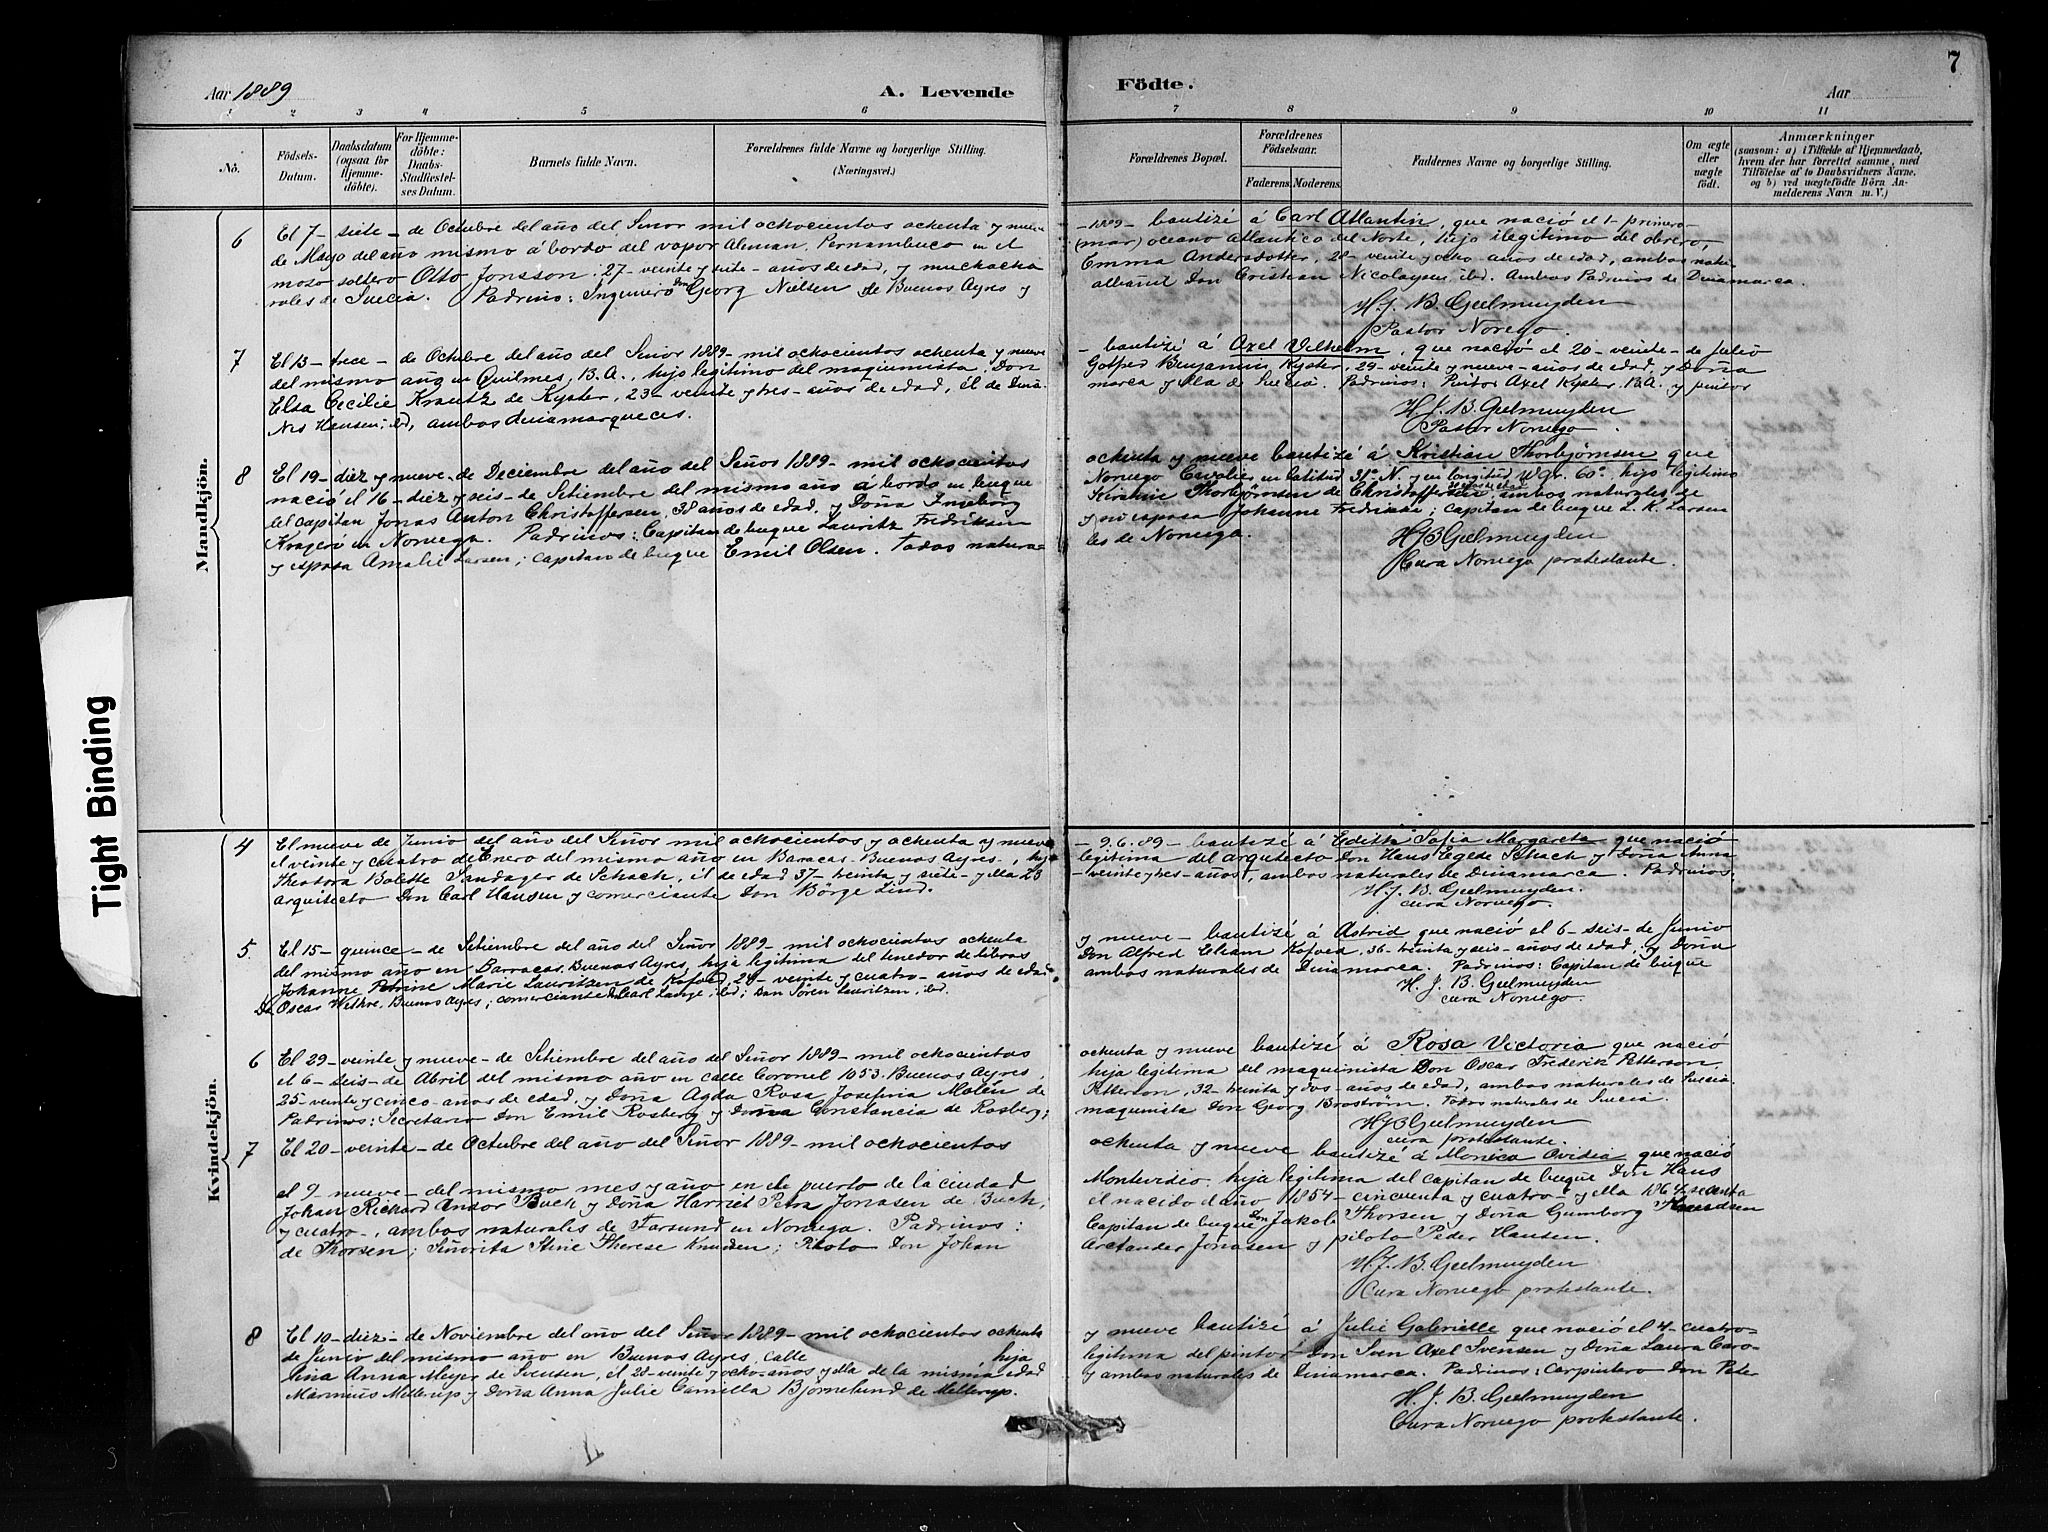 7
Aar 1889
A. Levende
Födte.
Aar
1 2 3 4 5 6 7 8 9 10 11
No.
Födsels-Datum.
Daabsdatum (ogsaa for Hjemmedöbte).
For Hjemmedöbte: Daabs-Stadfæstelses Datum.
Barnets fulde Navn.
Forældrenes fulde Navne og borgerlige Stilling. (Næringsvei.)
Forældrenes Bopæl.
Forældrenes Födselsaar.
Faderens. Moderens.
Faddernes Navne og borgerlige Stilling.
Om ægte eller uægte födt.
Anmærkninger (saasom: a) i Tilfælde af Hjemmedaab, hvem der har forrettet samme, med Tilföielse af to Daabsvidners Navne, og b) ved uægtefödte Börn Anmelderens Navn m. V.)
Mandkjön.
6 El 7 - siete - de Octubre del año del Señor mil ochocientos ochenta y nueve - 1889 - bautizé á Carl Atlantin, que nació el 1 - primero
de Mayo del año mismo á bordo del vapor Aleman, Pernambuco in el (mar) oceano Atlantico del Norte, hijo ilegitimo del obrero,
moso soltero Otto Jonsson, 27 - veinte y siete - años de edad, y muchacha Emma Andersdotter, 28 - veinte y ocho - años de edad, ambos natu-
rales de Suecia. Padrino: Ingeniero Don Georg Nielsen de Buenos Ayres y albañil Don Cristian Nicolaysen, ibd. Ambos Padrinos de Dinamarca.
H. J. B. Geelmuyden
Pastor Norego.
7 El 13 - trece - de Octubre del año del Señor 1889 - mil ochocientos ochenta y nueve - bautizé á Axel Vilhelm, que nació el 20 - veinte - de Julio
del mismo año en Quilmes, B. A., hijo legitimo del maquinista, Don Gotfred Benjamin Kyster, 29 - veinte y nueve - años de edad, y Doña
Elsa Cecilie Krautz de Kyster, 23 - veinte y tres - años de edad, él de Dina- marca y ella de Suecia. Padrinos: Pintor Axel Kyster, B.A. y pintor
Nis Hansen; ibd, ambos dinamarqueces.
H. J. B. Geelmuyden
Pastor Noruego.
8 El 19 - diez y nueve - de Deciembre del año del Señor 1889 - mil ochocientos ochenta y nueve bautizé á Kristian Thorbjørnsen que
nació el 16 - diez y seis - de Setiembre del mismo año á bordo in buque Noruego Cavalier en latitud 31° N. y en longitud W Gr. 60°, hijo legitimo
del capitan Jonas Anton Christoffersen, 38 años de edad, y Doña Ingeborg Kirstine Thorbjörnsen de Christoffersen, ambos naturales de
Kragerö en Noruega. Padrinos: Capitan de buque Lauritz Fredriksen y su esposa Johanne Fredrikke; capitan de buque L. K. Larsen
y esposa Amalie Larsen; capitan de buque Emil Olsen. Todos natura- les de Noruega.
H J B Geelmuyden
Cura Noruego protestante.
Kvindekjön.
4 El nueve de Junio del año del Señor mil ochocientos y ochenta y nueve - 9.6.89 - bautizé á Edith Sofia Margareta que nació
el veinte y cuatro de Enero del mismo año en Baracas - Buenos Ayres, hija legitima del arquitecto Don Hans Egede Schack y Doña Anna
Theodora Bolette Sandager de Schack, él de edad 37 - treinta y siete - y ella 23 - veinte y tres - años, ambos naturales de Dinamarca. Padrinos:
arquitecto Don Carl Hansen y comerciante Don Börge Lind.
H. J. B. Geelmuyden.
cura Noruego.
5 El 15 - quince - de Setiembre del año del Señor 1889 - mil ochocientos ochenta y nueve - bautizé á Astrid que nació el 6 - seis - de Junio
del mismo año en Barracas, Buenos Ayres, hija legitima del tenedor de libros Don Alfred Eliam Kofoed, 36 - treinta y seis - años de edad, y Doña
Johanne Petrine Marie Lauritzen de Kofoed, 24 - veinte y cuatro - años de edad ambos naturales de Dinamarca. Padrinos: Capitan de buque
Don Oscar Wethre, Buenos Ayres; comerciante Don Carl Lange, ibd; Don Sören Lauritzen, ibd.
H. J. B. Geelmuyden
cura Noruego.
6 El 29 - veinte y nueve - de Setiembre del año del Señor 1889 - mil ochocientos ochenta y nueve bautizé á Rosa Victoria que nació
el 6 - seis - de Abril del mismo año en calle Coronel 1053. Buenos Ayres, hija legitima del maquinista Don Oscar Frederik Petterson,
25 - veinte y cinco - años de edad, y Doña Agda Rosa Josefina Molén de Petterson, 32 - treinta y dos - años de edad, ambos naturales de Suecia.
Padrinos: Secretario Don Emil Rosberg y Doña Constancia de Rosberg; maquinista Don Georg Broström. Todos naturales de Suecia.
H J B Geelmuyden
cura protestante.
7 El 20 - veinte - de Octubre del año del Señor 1889 - mil ochocientos ochenta y nueve bautizé á Monica Ovidia que nació
el 9 - nueve - del mismo mes y año en el puerto de la ciudad Montevideo, hija legitima del capitan de buque Don Hans
Johan Richard Ansor Buch y Doña Harriet Petra Jonasen de Buch, él nacido el año 1854 - cincuenta y cuatro - y ella 1864 - sesenta
y cuatro -, ambos naturales de Farsund en Noruega. Padrinos: Capitan de buque Don Jakob Thorsen y Doña Gunborg Knudsen
de Thorsen; Señorita Stine Therese Knudsen; Piloto Don Johan Arctander Jonasen y piloto Peder Hansen.
H. J. B. Geelmuyden
Cura Noruego protestante.
8 El 10 - diez - de Noviembre del año del Señor 1889 - mil ochocientos ochenta y nueve bautizé á Julie Gabrielle que nació el 4 - cuatro -
de Junio del mismo año en Buenos Ayres, calle hija legitima del pintor Don Sven Axel Svensen y Doña Laura Caro-
lina Anna Meyer de Svensen, él 28 - veinte y ocho - años y ella de la misma edad y ambos naturales de Dinamarca. Padrinos: Carpintero Don Peter
Marinus Mellerup y Doña Anna Julie Camilla Bjørnelund de Mellerup.
H. J. B. Geelmuyden
Cura Noruego protestante.
Tight Binding